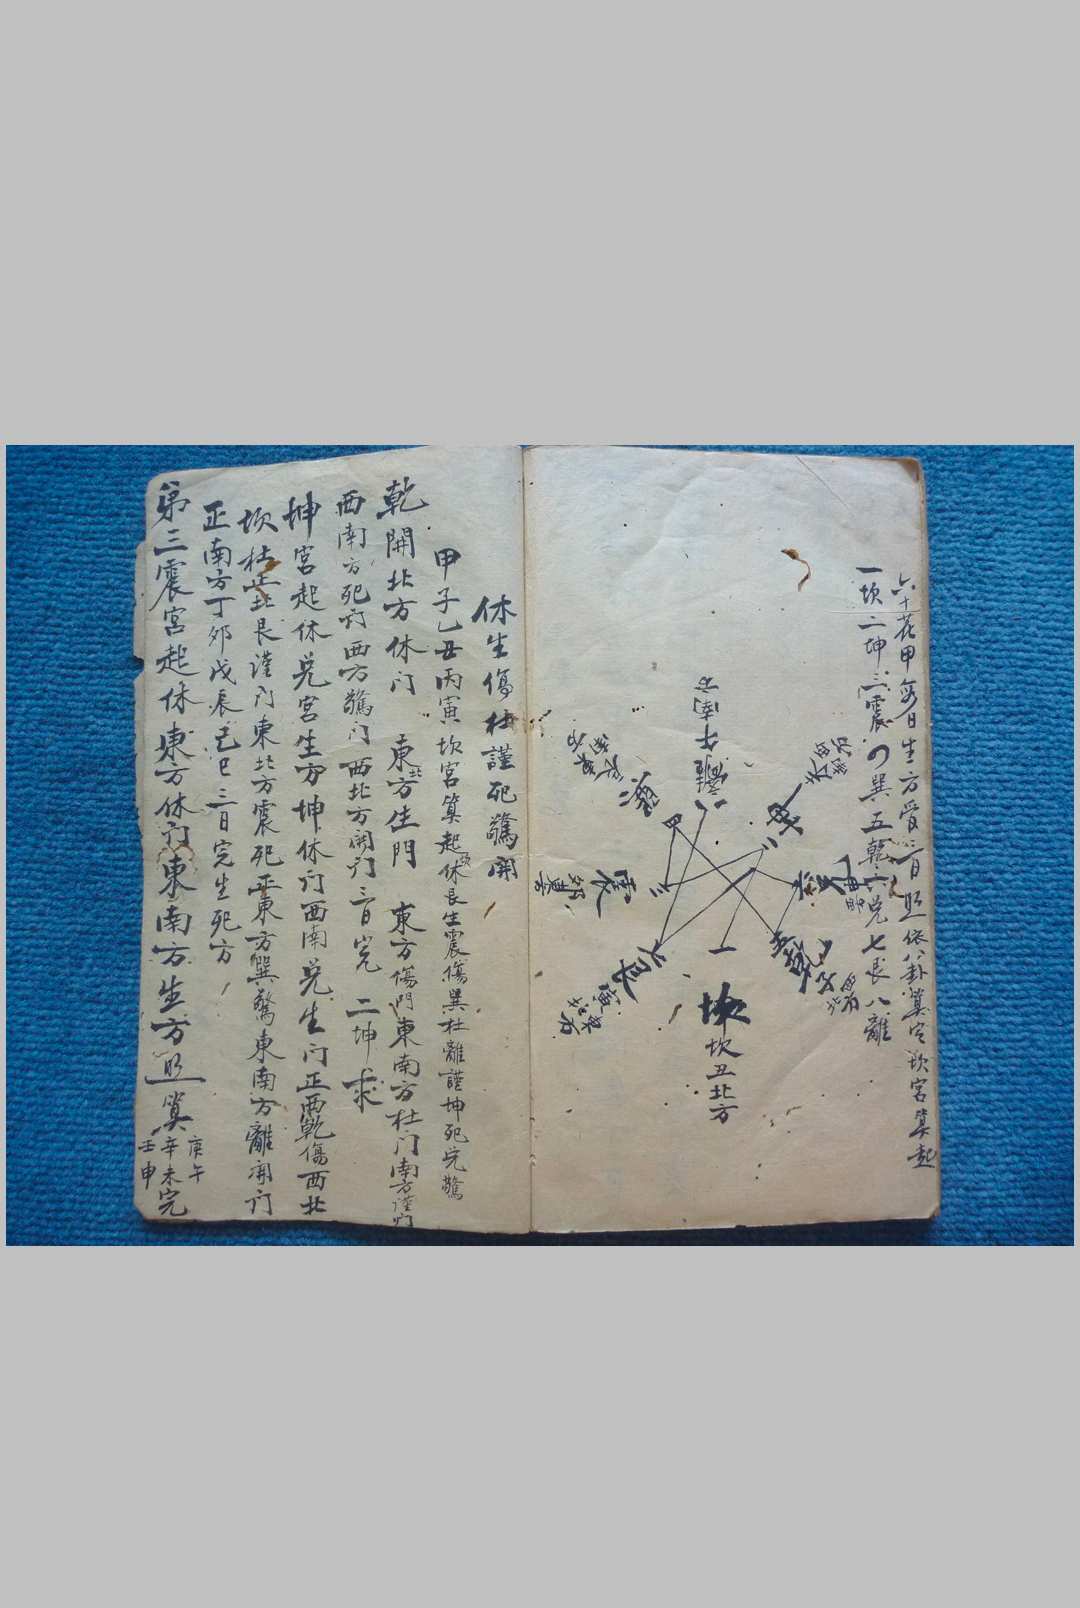 六十花甲每日生方受三日照依八卦算定坎宮算起
一坎二坤三震四巽五乾六兌七艮八離
離午南方
八
四
二
三
震
六
七艮
五
一
坎坎丑北方
休生傷杜謹死驚開
甲子乙丑丙寅坎宮算起坎休艮生震傷巽杜離謹坤死兌驚
乾開北方休门 東北方生門 東方傷門東南方杜门南方谨门
西南方死门西方驚门西北方開门三日完 二坤求
坤宮起休兌宮生方坤休门西南兌生门正西乾傷西北
坎杜正北艮谨门東北方震死正東方巽驚東南方離開门
正南方丁卯戊辰己巳三日完生死方
第三震宮起休東方休门東南方生方照算庚午辛未壬申完